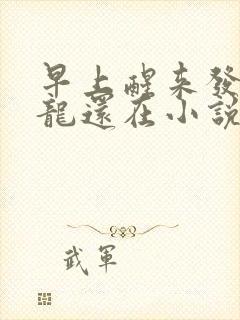 早上醒来發
龍還在小說
武軍